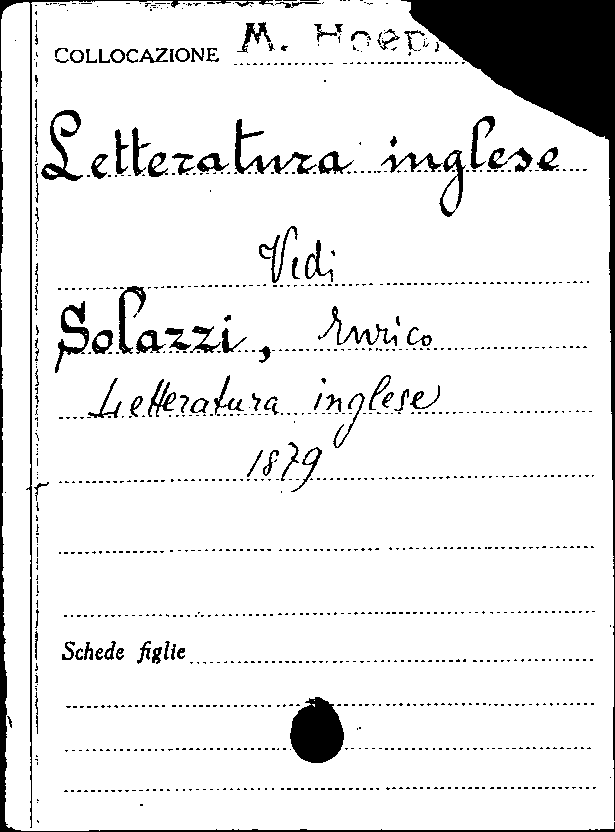 COLLOCAZIONE M.
Letteratura inglese
Vedi
Solazzi, Enrico
Letteratura inglese
1879
Schede figlie